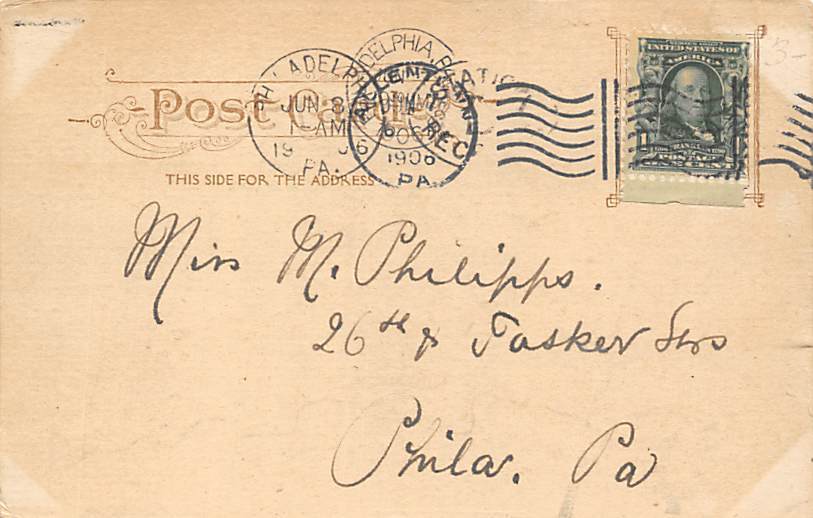 POST CARD
THIS SIDE FOR THE ADDRESS
PHILADELPHIA
JUN 8
1 AM
1906
PA.
PHILADELPHIA, PA.
1906
PA.
REC'D
UNITED STATES OF
AMERICA
1 1
FRANKLIN
POSTAGE
ONE CENT
Miss M. Philipps.
26th & Tasker Sts
Phila. Pa
3-